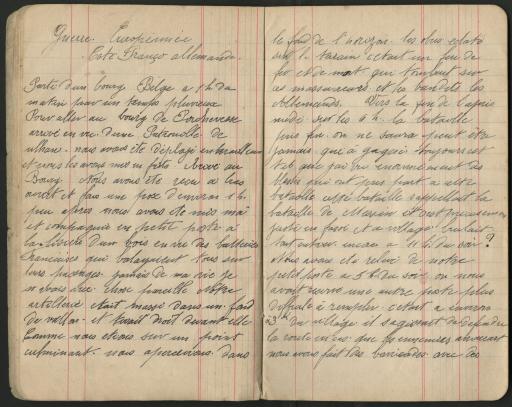 Guerre Européenne
Côté Franco allemande.
Partis d'un bourg Belge a 1 h du
matin par un temps pluvieux
Pour aller au bourg de
arrivé en vue d'une Patrouille de
uhlans. nous avons été déployé en tirailleurs
et avons les avons mis en fuite Arrivé au
Bourg Nous avons été reçu a bras
ouvert et fais une pose d'environ 1 h.
peu après nous avons été mis moi
et compagnie en petit poste à
la lisière d'un bois en vue des batteries
françaises qui balayaient tous sur
leurs passages. jamais de ma vie je
vois chose pareille Notre
artillerie était massé dans un fond
de vallon. et tirait droit devant elle
Comme nous étions sur un point
culminant. nous apercevions dans
le fond de l'horizon. les obus éclaté
sur le terrain c'était un feu de
fer et de mort qui tombait sur
ces massacreurs et les bandits les
Allemands. Vers la fin de l'après
midi vers les 4 h. la bataille
pris fin on ne saura peut être
jamais que a gagné toujours est
t'il que j'ai vu énormément des
blessés qui ont pris part a cette
bataille cette bataille s'appellent la
bataille de et c'est
partie en farri et a village brulait
tout entier encore a 11 h du soir ?
Nous avons été relevé de notre
petit poste a 5 h du soir. ou nous
avait une autre poste plus
difficile à remplir c'était a environ
à 3 k du village il s'agissait de défendre
la route en cas que les ennemies avancent
nous avons fait des barricades avec des